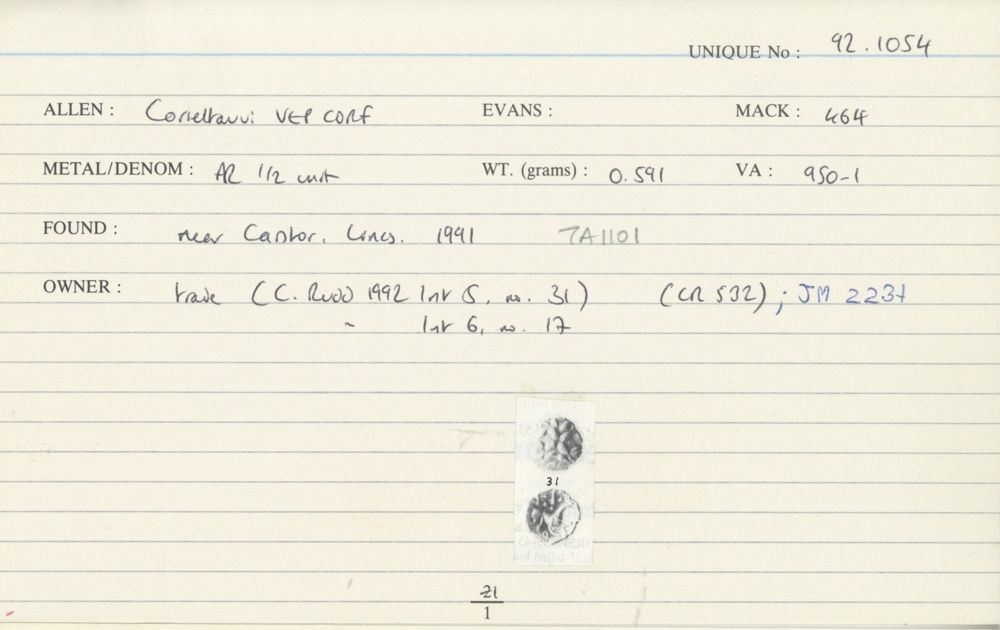 UNIQUE No : 92.1054
ALLEN : Corieltauvi VEP CORF EVANS : MACK : 464
METAL/DENOM : AR 1/2 unit WT. (grams) : 0.591 VA : 950-1
FOUND : near Caistor. Lincs. 1991 TA1101
OWNER : trade (C. Rudd 1992 list 5, no. 31) (CR 532) ; JM 2237
~ list 6, no. 17
31
21
1